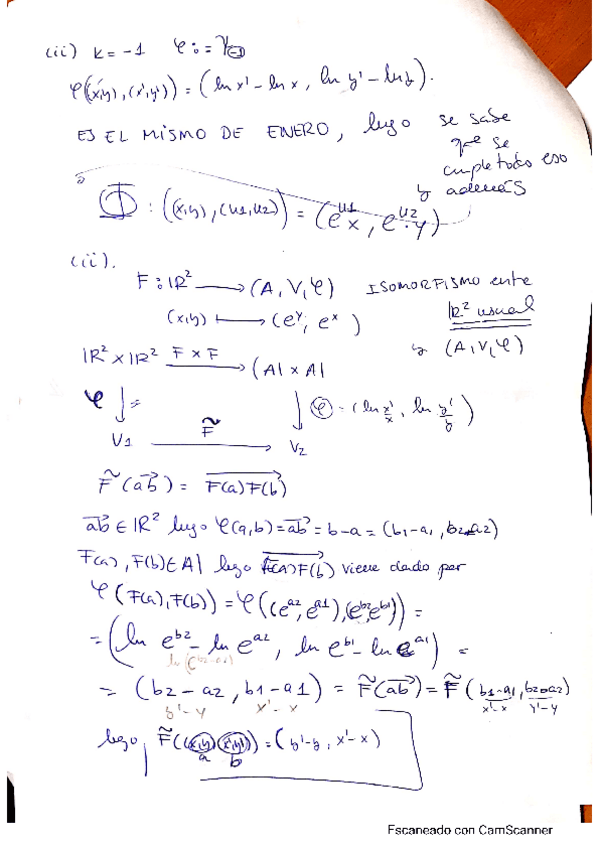 (ii) k = -1 φ := φ₍₋₁₎
φ((x,y),(x',y')) = (ln x' - ln x, ln y' - ln y).
ES EL MISMO DE ENERO, luego se sabe
que se
cumple todo eso
y además
Φ : ((x,y),(u1,u2)) = (e^{u1} x, e^{u2}·y)
(ii).
F : IR² ⟶ (A, V, φ) ISOMORFISMO entre
(x,y) ⟼ (e^y, e^x) IR² usual
y (A, V, φ)
IR² × IR² F × F ⟶ (A| × A|
φ ↓ = ↓ φ = (ln x'/x, ln y'/y)
V1 F̃ ⟶ V2
F̃(ab→) = F(a)F(b)→
ab→ ∈ IR² luego φ(a,b) = ab→ = b-a = (b1-a1, b2-a2)
F(a), F(b) ∈ A| luego F(a)F(b)→ viene dado por
φ(F(a), F(b)) = φ((e^{a2}, e^{a1}), (e^{b2}, e^{b1})) =
= (ln e^{b2} - ln e^{a2}, ln e^{b1} - ln e^{a1}) =
ln(e^{b2-a2})
= (b2-a2, b1-a1) = F̃(ab→) = F̃(b1-a1, b2-a2)
y'-y x'-x x'-x y'-y
luego, F̃((x,y)(x',y')) = (y'-y, x'-x)
a b
Escaneado con CamScanner